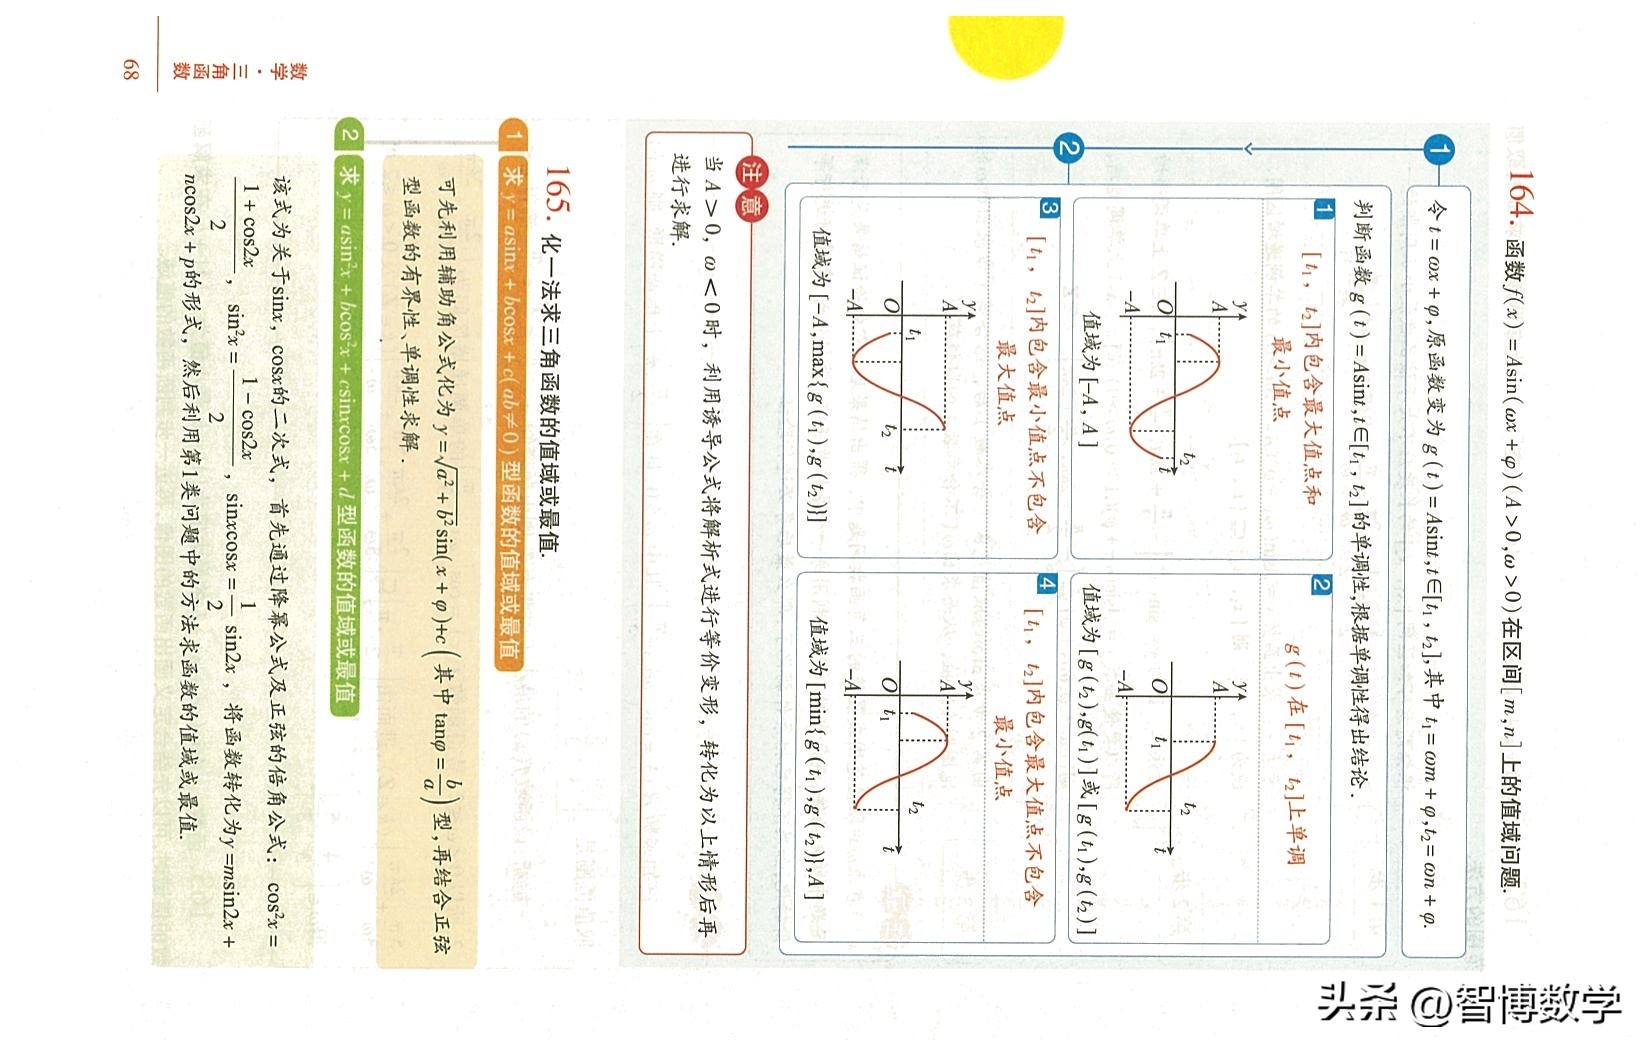 164. 函数f(x)=Asin(ωx+φ)(A>0,ω>0)在区间[m,n]上的值域问题.
1
令t=ωx+φ,原函数变为g(t)=Asint,t∈[t₁,t₂],其中t₁=ωm+φ,t₂=ωn+φ.
2
判断函数g(t)=Asint,t∈[t₁,t₂]的单调性,根据单调性得出结论.
1
[t₁,t₂]内包含最大值点和
最小值点
y
A
O
-A
t₁
t₂
t
值域为[-A,A]
2
g(t)在[t₁,t₂]上单调
y
A
O
-A
t₁
t₂
t
值域为[g(t₂),g(t₁)]或[g(t₁),g(t₂)]
3
[t₁,t₂]内包含最小值点不包含
最大值点
y
A
O
-A
t₁
t₂
t
值域为[-A,max{g(t₁),g(t₂)}]
4
[t₁,t₂]内包含最大值点不包含
最小值点
y
A
O
-A
t₁
t₂
t
值域为[min{g(t₁),g(t₂)},A]
注意
当A>0,ω<0时,利用诱导公式将解析式进行等价变形,转化为以上情形后再
进行求解.
165. 化一法求三角函数的值域或最值.
1 求y=asinx+bcosx+c(ab≠0)型函数的值域或最值
可先利用辅助角公式化为y=√(a²+b²)sin(x+φ)+c(其中tanφ=b/a)型,再结合正弦
型函数的有界性、单调性求解.
2 求y=asin²x+bcos²x+csinxcosx+d型函数的值域或最值
该式为关于sinx,cosx的二次式,首先通过降幂公式及正弦的倍角公式:cos²x=
(1+cos2x)/2,sin²x=(1-cos2x)/2,sinxcosx=1/2 sin2x,将函数转化为y=msin2x+
ncos2x+p的形式,然后利用第1类问题中的方法求函数的值域或最值.
数学·三角函数
68
头条 @智博数学